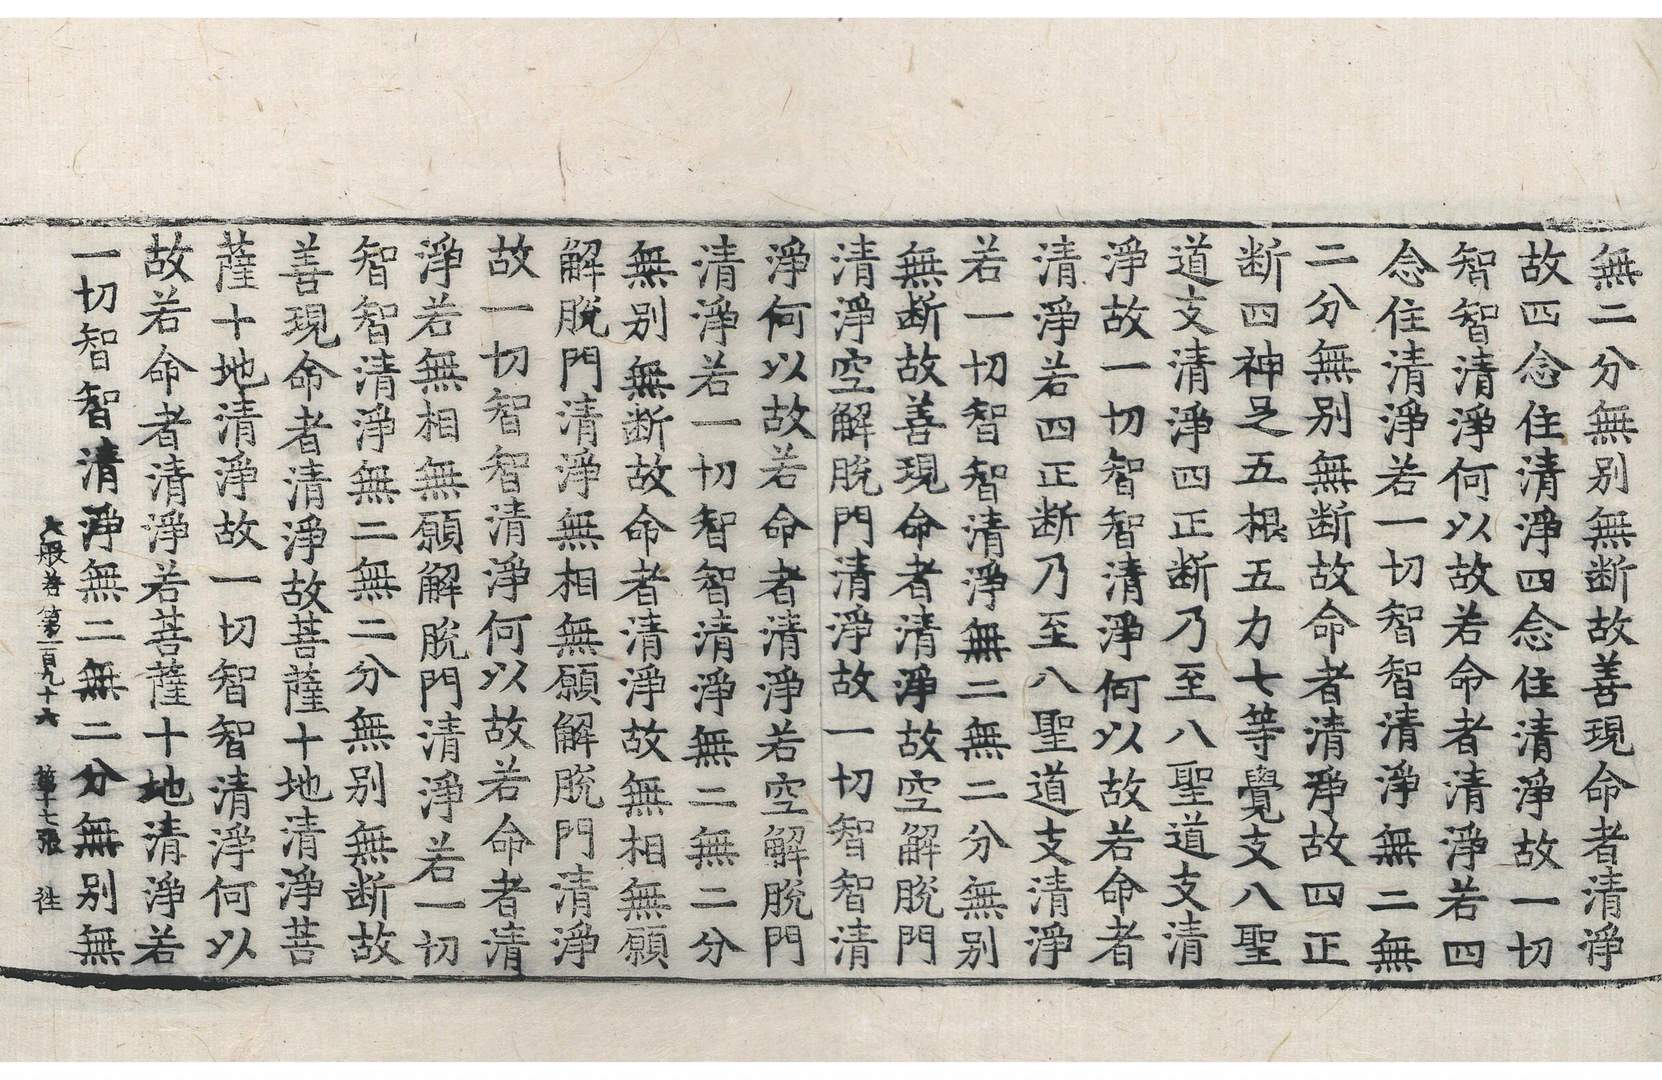 無二分無別無断故善現命者清淨
故四念住清淨四念住清淨故一切
智智清淨何以故若命者清淨若四
念住清淨若一切智智清淨無二無
二分無別無断故命者清淨故四正
断四神足五根五力七等覺支八聖
道支清淨四正断乃至八聖道支清
淨故一切智智清淨何以故若命者
清淨若四正断乃至八聖道支清淨
若一切智智清淨無二無二分無別
無断故善現命者清淨故空解脫門
清淨空解脫門清淨故一切智智清
淨何以故若命者清淨若空解脫門
清淨若一切智智清淨無二無二分
無別無断故命者清淨故無相無願
解脫門清淨無相無願解脫門清淨
故一切智智清淨何以故若命者清
淨若無相無願解脫門清淨若一切
智智清淨無二無二分無別無断故
善現命者清淨故菩薩十地清淨菩
薩十地清淨故一切智智清淨何以
故若命者清淨若菩薩十地清淨若
一切智智清淨無二無二分無別無
大般若第一百九十六 第十七張 往